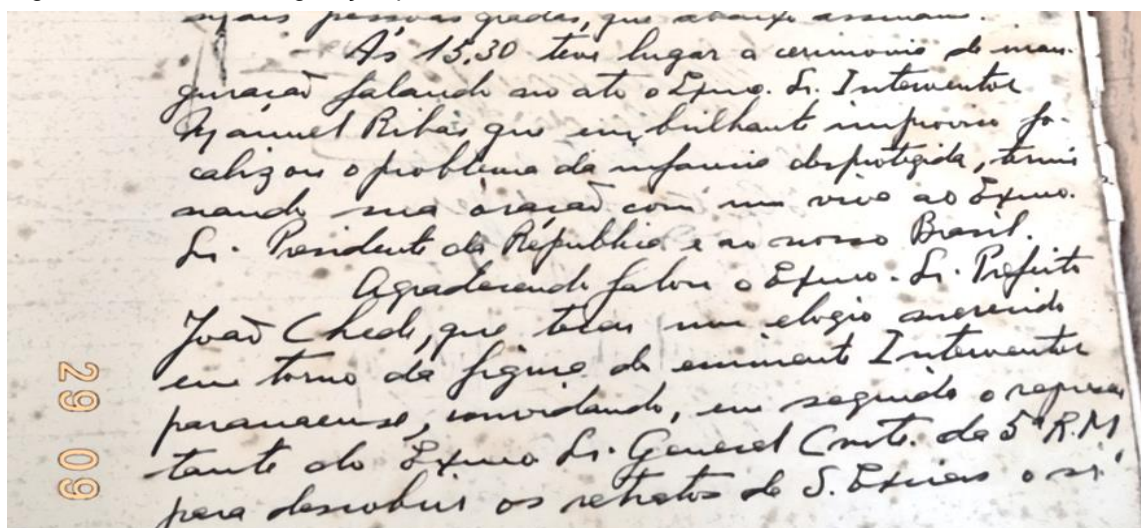 mais pessoas gradas, que abaixo assinam.
Ás 15,30 teve lugar a cerimonia de inau-
guração falando no ato o Exmo. Sr. Interventor
Manuel Ribas que em brilhante improviso fo-
calizou o problema da infancia desprotegida, termi
nando sua oração com um viva ao Exmo.
Sr. Presidente da República e ao nosso Brasil.
Agradecendo falou o Exmo. Sr. Prefeito
João Chede, que teceu um elogio merecido
em torno da figura do eminente Interventor
paranaense, convidando, em seguida o represen
tante do Exmo Sr. General Cmte. da 5ª R.M
para descobrir os retratos de S. Excias o sr.
29 09